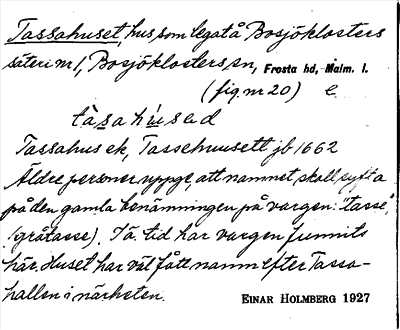 Tassahuset, hus, som legat å Bosjöklosters
säteri nr 1, Bosjöklosters sn, Frosta hd, Malm. l.
(fig nr 20) e
tàsahúsəd
Tassahus ek, Tassehuusett jb 1662
Äldre personer uppge, att namnet skall syfta
på den gamla benämningen på vargen: "tasse",
(gråtasse). I ä. tid har vargen funnits
här. Huset har väl fått namn efter Tassa-
hallen i närheten. EINAR HOLMBERG 1927